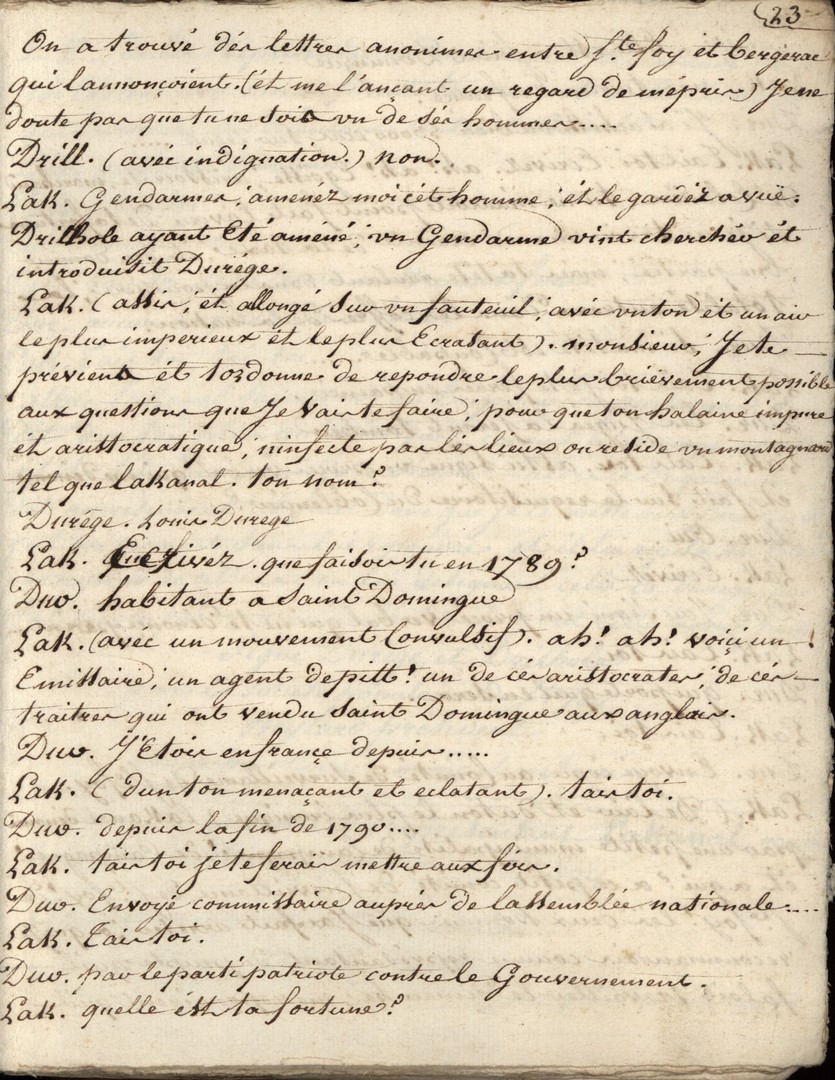 23
On a trouvé dés lettres anonimes entre Ste foy et bergerac
qui l'annonçoient. (ét me l'ançant un regard de mépris) Je ne
doute pas que tu ne sois un de sés hommes....
Drill. (avéc indignation.) non.
Lak. Gendarmes; aménéz moi cét homme; ét le gardéz a vuë.
Drilhole ayant Eté améné; un Gendarme vint cherchér ét
introduisit Durége.
Lak. (assis; ét allongé sur un fauteuil; avéc un ton ét un air
le plus imperieux ét le plus Ecratant). monsieur; Je te
préviens ét t'ordonne de repondre le plus briévement possible
aux questions que Je vais te faire; pour que ton halaine impure
ét aristocratique; n'infecte pas lés lieux ou reside un montagnard
tel que lakanal. ton nom?
Durége. Louis Durege
Lak. Ecrivéz. que faisois tu en 1789?
Dur. habitant a Saint Domingue
Lak. (avéc un mouvement Convulsif). ah! ah! voiçi un !
Emissaire; un agent de pitt! un de cés aristocrates; de cés
traitres qui ont vendu Saint Domingue aux anglais.
Dur. J'Etois en françe depuis.....
Lak. (d'un ton menaçant et eclatant). tais toi.
Dur. depuis la fin de 1790....
Lak. tais toi je te ferais mettre aux férs.
Dur. Envoyé commissaire auprés de l'assemblée nationale....
Lak. Tais toi.
Dur. par le parti patriote contre le Gouvernement.
Lak. quelle ést ta fortune?